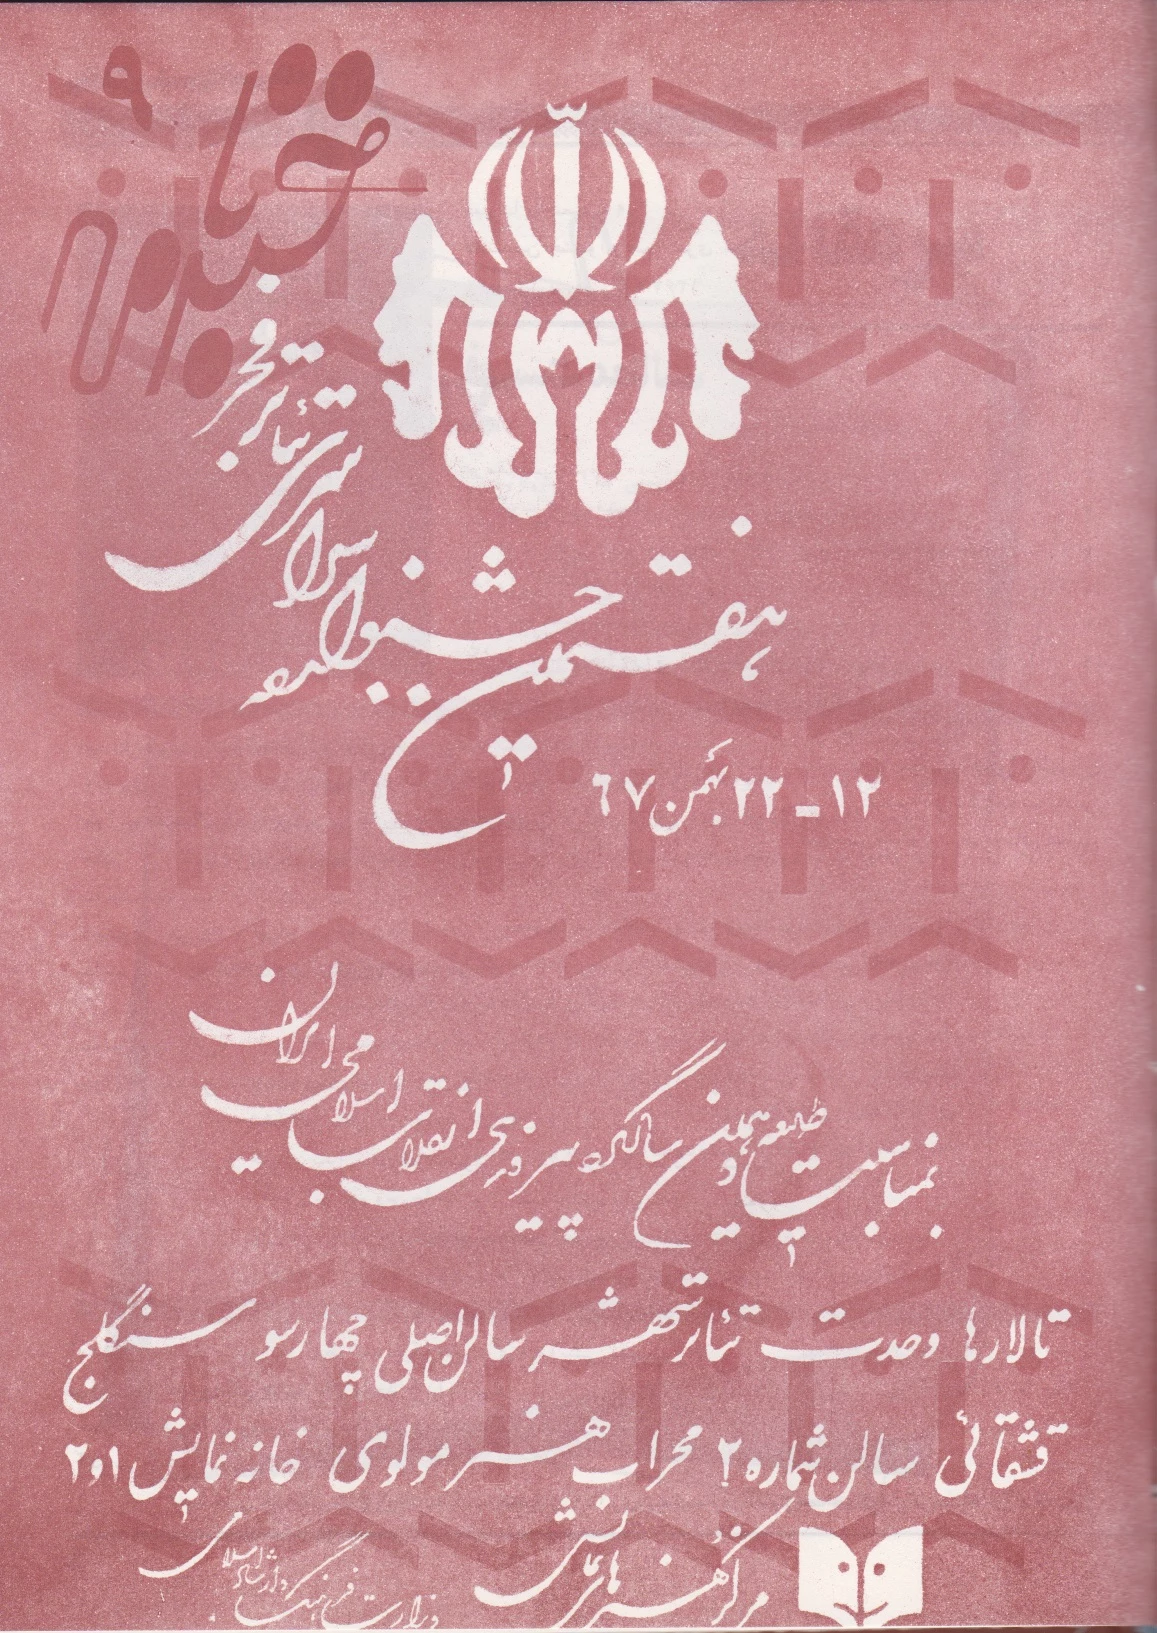 ۹
هفتمین جشنواره سراسری تئاتر فجر
۱۲ - ۲۲ بهمن ۶۷
بمناسبت طلیعه دهمین سالگرد پیروزی انقلاب اسلامی ایران
تالارها وحدت تئاترشهر سالن اصلی چهارسو سنگلج
قشقائی سالن شماره ۲ محراب هنر مولوی خانه نمایش ۱و۲
مرکز هنرهای نمایشی
وزارت فرهنگ و ارشاد اسلامی